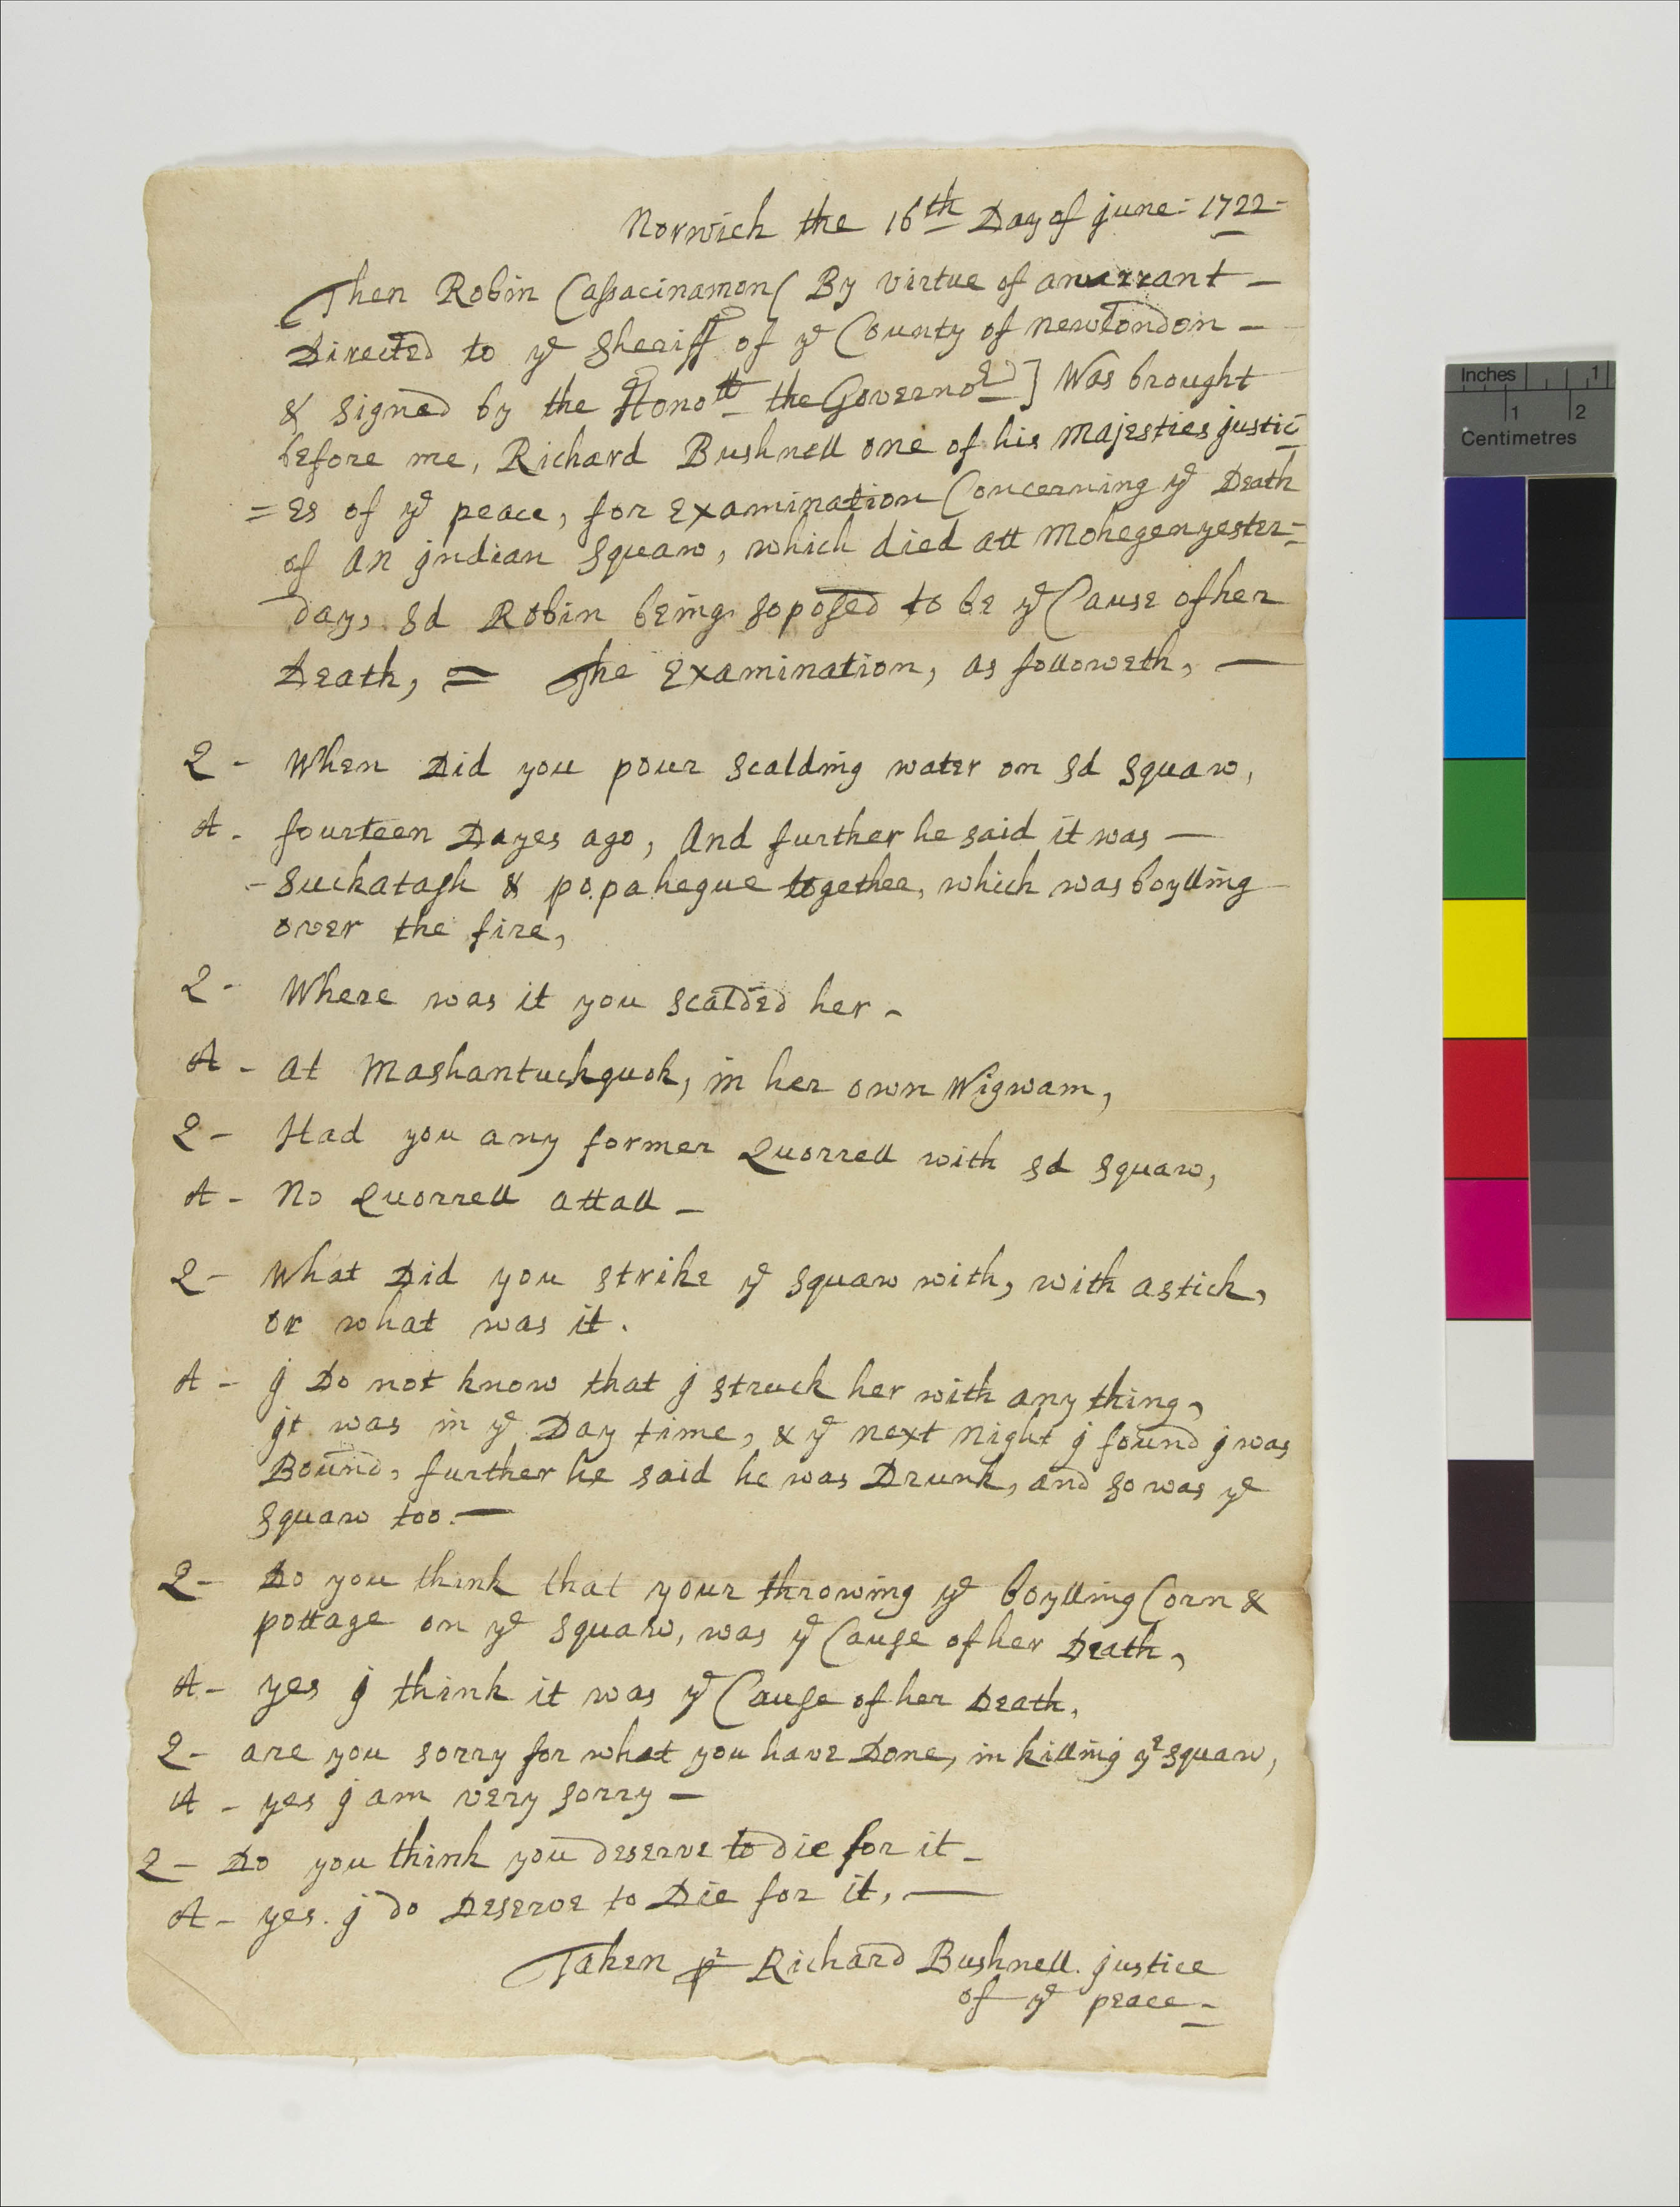 Norwich the 16th Day of june: 1722-
Then Robin Cassacinamon ( By virtue of an warrant -
Directed to ye Sheriff of ye County of newlondon -
& signed by the Honoll the Governor ] Was brought
before me, Richard Bushnell one of his majesties justic
=es of ye peace, for Examination Concerning ye Death
of an jndian squaw, which died att mohegen yester=
day, sd Robin being soposed to be ye Cause of her
Death, = The Examination, as followeth, -
Q - When Did you pour scalding water on sd squaw,
A - fourteen Dayes ago, And further he said it was -
- Suckatash & popahegue together, which was boylling
over the fire,
Q - Where was it you scalded her -
A - at Mashantuckquok, in her own Wigwam,
Q - Had you any former Quorrell with sd squaw,
A - No Quorrell attall -
Q - What Did you strike ye squaw with, with a stick,
or what was it.
A - j Do not know that j struck her with any thing,
jt was in ye Day time, & ye next night j found j was
Bound, further he said he was Drunk, and so was ye
squaw too. -
Q - Do you think that your throwing ye boylling Corn &
pottage on ye squaw, was ye Cause of her Death,
A - yes j think it was ye Cause of her Death,
Q - are you sorry for what you have Done, in killing ye squaw,
A - yes j am very sorry -
Q - Do you think you deserve to die for it -
A - yes. j do Deserve to Die for it, -
Taken pr Richard Bushnell. justice
of ye peace -
Inches 1
1 2
Centimetres